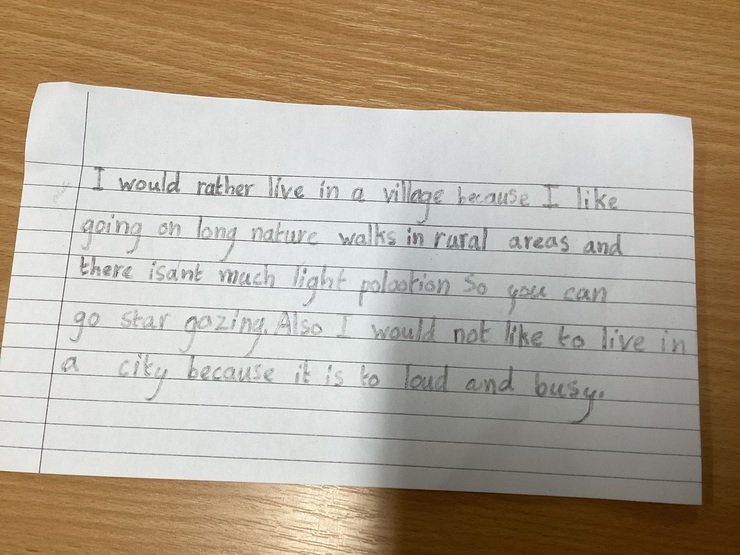 I would rather live in a village because I like
going on long nature walks in rural areas and
there isant much light polootion So you can
go star gazing. Also I would not like to live in
a city because it is to loud and busy.